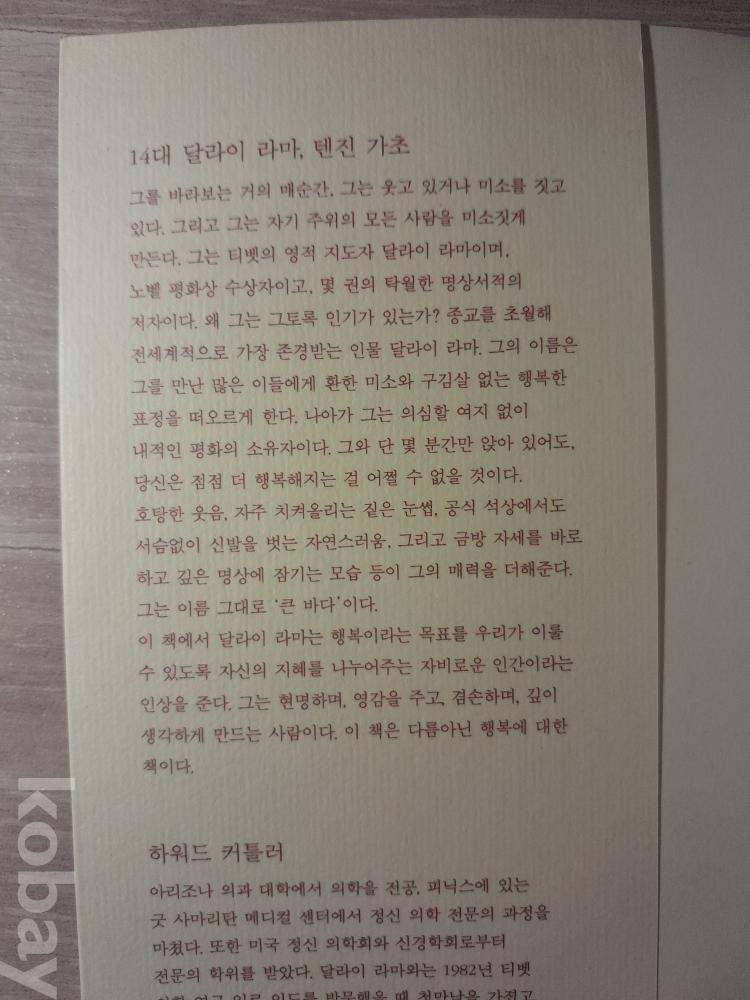 14대 달라이 라마, 텐진 가초
그를 바라보는 거의 매순간, 그는 웃고 있거나 미소를 짓고
있다. 그리고 그는 자기 주위의 모든 사람을 미소짓게
만든다. 그는 티벳의 영적 지도자 달라이 라마이며,
노벨 평화상 수상자이고, 몇 권의 탁월한 명상서적의
저자이다. 왜 그는 그토록 인기가 있는가? 종교를 초월해
전세계적으로 가장 존경받는 인물 달라이 라마. 그의 이름은
그를 만난 많은 이들에게 환한 미소와 구김살 없는 행복한
표정을 떠오르게 한다. 나아가 그는 의심할 여지 없이
내적인 평화의 소유자이다. 그와 단 몇 분간만 앉아 있어도,
당신은 점점 더 행복해지는 걸 어쩔 수 없을 것이다.
호탕한 웃음, 자주 치켜올리는 짙은 눈썹, 공식 석상에서도
서슴없이 신발을 벗는 자연스러움, 그리고 금방 자세를 바로
하고 깊은 명상에 잠기는 모습 등이 그의 매력을 더해준다.
그는 이름 그대로 '큰 바다'이다.
이 책에서 달라이 라마는 행복이라는 목표를 우리가 이룰
수 있도록 자신의 지혜를 나누어주는 자비로운 인간이라는
인상을 준다. 그는 현명하며, 영감을 주고, 겸손하며, 깊이
생각하게 만드는 사람이다. 이 책은 다름아닌 행복에 대한
책이다.
하워드 커틀러
아리조나 의과 대학에서 의학을 전공, 피닉스에 있는
굿 사마리탄 메디컬 센터에서 정신 의학 전문의 과정을
마쳤다. 또한 미국 정신 의학회와 신경학회로부터
전문의 학위를 받았다. 달라이 라마와는 1982년 티벳
의학 연구 일로 인도를 방문했을 때 첫만남을 가졌고
kobay